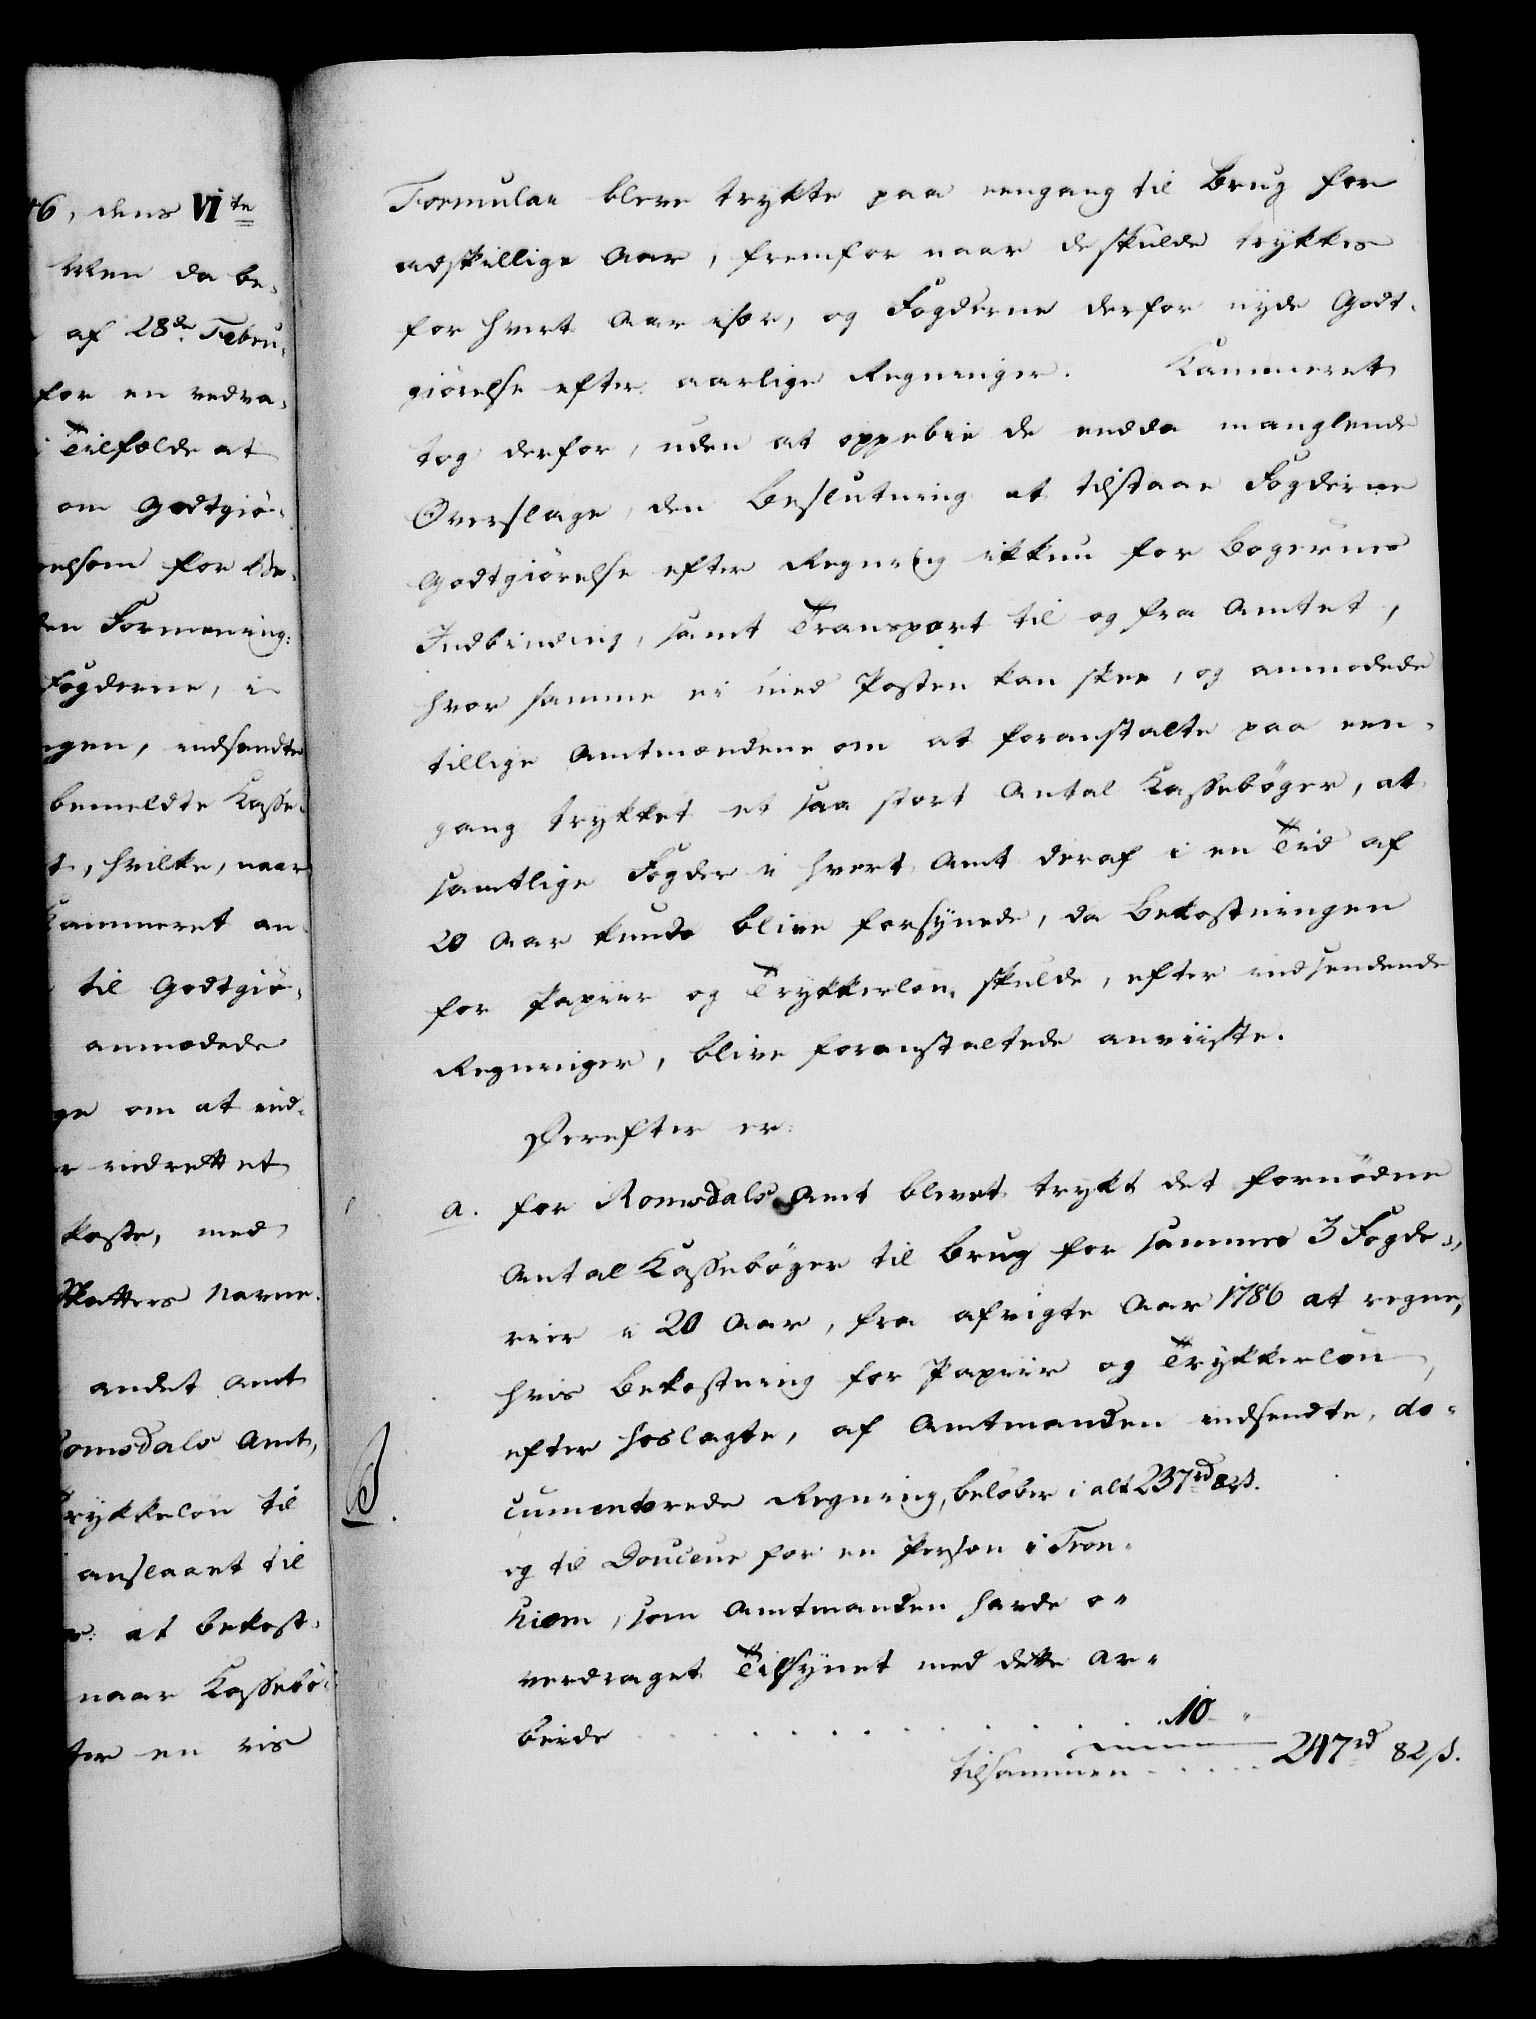 46, dens VI te
Men da be-
af 28de Febru-
for en vedva-
Tilfælde at
om Godtgiö-
relsen for Be-
den Formening:
Fogderne, i
ngen, indsendte
bemeldte Kasse-
t, hvilke, naar
Kammeret an-
til Godtgiö-
anmodede
ge om at ind-
r indrettet
koste, med
Skatters Navne.
andet Amt
Romsdals Amt,
Trykkelön til
anslaaet til
r: at bekost-
naar Kassebö-
ter en vis
Formular bleve trykte paa eengang til Brug for
adskillige Aar, fremfor naar de skulde trykkes
for hvert Aar især, og Fogderne derfor nyde Godt-
giörelse efter aarlige Regninger. Kammeret
tog derfor, uden at oppebie de endda manglende
Overslage, den Beslutning at tilstaae Fogderne
Godtgiörelse efter Regning ikkun for Bögernes
Indbinding, samt Transport til og fra Amtet,
hvor samme ei med Posten kan skee, og anmodede
tillige Amtmændene om at foranstalte paa een-
gang trykket et saa stort Antal Kassebøger, at
samtlige Fogder i hvert Amt deraf i en Tid af
20 Aar kunde blive forsynede, da Bekostningen
for Papiir og Trykkerlön skulde, efter indsendende
Regninger, blive foranstaltede anviiste.
Derefter er:
a. for Romsdals Amt blevet trykt det fornödne
Antal Kassebøger til Brug for sammes 3 Fogde-
rier i 20 Aar, fra afvigte Aar 1786 at regne,
hvis Bekostning for Papiir og Trykkerlön,
efter hoslagte, af Amtmanden indsendte, do-
cumenterede Regning, belöber i alt 237 rd 82 ß.
og til Douceur for en Person i Tron-
hiem, som Amtmanden havde o-
verdraget Tilsynet med dette Ar-
beide . . . . . . . . . 10 - "
tilsammen . . . . . 247 rd 82 ß.